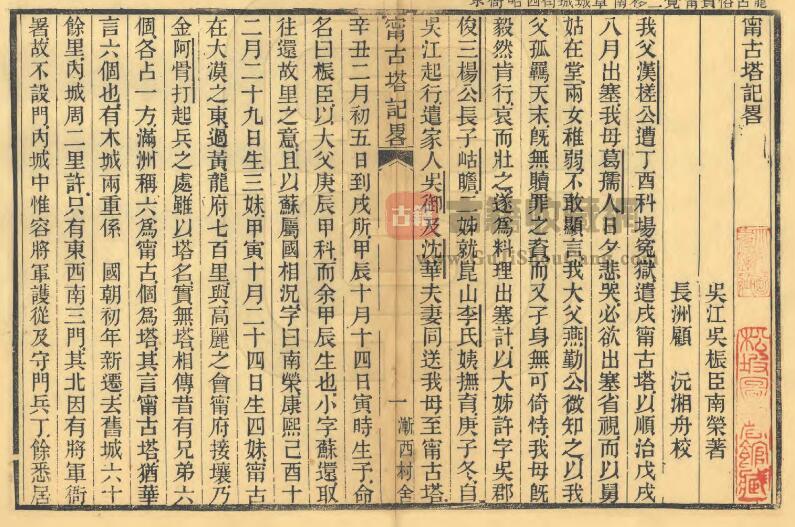 甯古塔記畧
吳江吳桭臣南榮著
長洲顧　沅湘舟校
我父漢槎公遭丁酉科場冤獄遣戍甯古塔以順治戊戌
八月出塞我母葛孺人日夕悲哭必欲出塞省視而以舅
姑在堂兩女稚弱不敢顯言我大父燕勤公微知之以我
父孤羈天末旣無贖罪之資而又子身無可倚恃我母旣
毅然肯行哀而壯之遂爲料理出塞計以大姊許字吳郡
俊三楊公長子岵瞻二姊就崑山李氏姨撫育庚子冬自
吳江起行遣家人吳御及沈華夫妻同送我母至甯古塔
甯古塔記畧
一
漸西村舍
辛丑二月初五日到戍所甲辰十月十四日寅時生予命
名曰桭臣以大父庚辰甲科而余甲辰生也小字蘇還取
往還故里之意且以蘇屬國相況字曰南榮康熙己酉十
二月二十九日生三妹甲寅十月二十四日生四妹甯古
在大漠之東過黃龍府七百里與高麗之會甯府接壤乃
金阿骨打起兵之處雖以塔名實無塔相傳昔有兄弟六
個各占一方滿洲稱六爲甯古個爲塔其言甯古塔猶華
言六個也有木城兩重係　國朝初年新遷去舊城六十
餘里內城周二里許只有東西南三門其北因有將軍衙
署故不設門內城中惟容將軍護從及守門兵丁餘悉居
古籍
古籍收藏網
www.GuJiShouCang.com